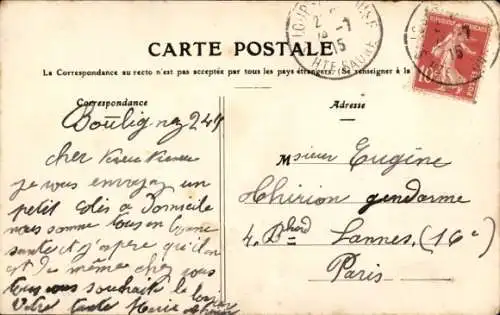 CARTE POSTALE
La Correspondance au recto n'est pas acceptée par tous les pays étrangers. (Se renseigner à la
Correspondance
Adresse
HTE-SAONE
cher
je vous envoyai un
petit Colis a Domicile
nous somme tous en bonne
sante et j'espere qu'il en
est de même chez vous
tous vous souhait le bonjour
Votre tante Marie
Msieur Eugène
Thirion gendarme
4. Bard Lannes, (16e)
Paris